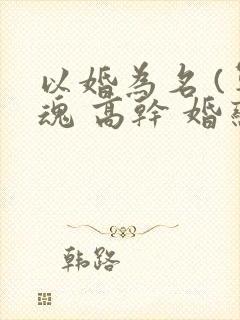 以婚為名(
魂 高幹 婚
韩路